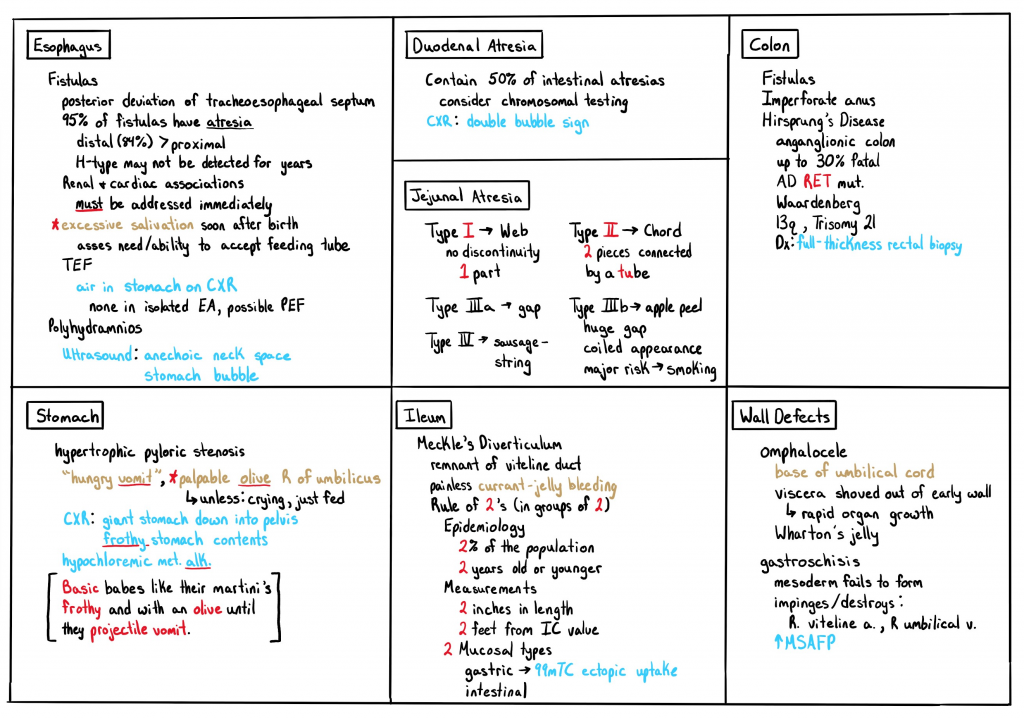 Esophagus
Fistulas
posterior deviation of tracheoesophageal septum
95% of fistulas have atresia
distal (84%) > proximal
H-type may not be detected for years
Renal + cardiac associations
must be addressed immediately
*excessive salivation soon after birth
asses need/ability to accept feeding tube
TEF
air in stomach on CXR
none in isolated EA, possible PEF
Polyhydramnios
Ultrasound: anechoic neck space
stomach bubble
Duodenal Atresia
Contain 50% of intestinal atresias
consider chromosomal testing
CXR: double bubble sign
Jejunal Atresia
Type I → Web
no discontinuity
1 part
Type II → Chord
2 pieces connected
by a tube
Type IIIa → gap
Type IIIb → apple peel
huge gap
coiled appearance
major risk → smoking
Type IV → sausage-
string
Colon
Fistulas
Imperforate anus
Hirsprung's Disease
anganglionic colon
up to 30% fatal
AD RET mut.
Waardenberg
13q, Trisomy 21
Dx: full-thickness rectal biopsy
Stomach
hypertrophic pyloric stenosis
"hungry vomit", *palpable olive R of umbilicus
↳ unless: crying, just fed
CXR: giant stomach down into pelvis
frothy stomach contents
hypochloremic met. alk.
[Basic babes like their martini's
frothy and with an olive until
they projectile vomit.]
Ileum
Meckle's Diverticulum
remnant of viteline duct
painless currant-jelly bleeding
Rule of 2's (in groups of 2)
Epidemiology
2% of the population
2 years old or younger
Measurements
2 inches in length
2 feet from IC value
2 Mucosal types
gastric → 99mTC ectopic uptake
intestinal
Wall Defects
omphalocele
base of umbilical cord
viscera shoved out of early wall
↳ rapid organ growth
Wharton's jelly
gastroschisis
mesoderm fails to form
impinges/destroys:
R. viteline a., R umbilical v.
↑MSAFP